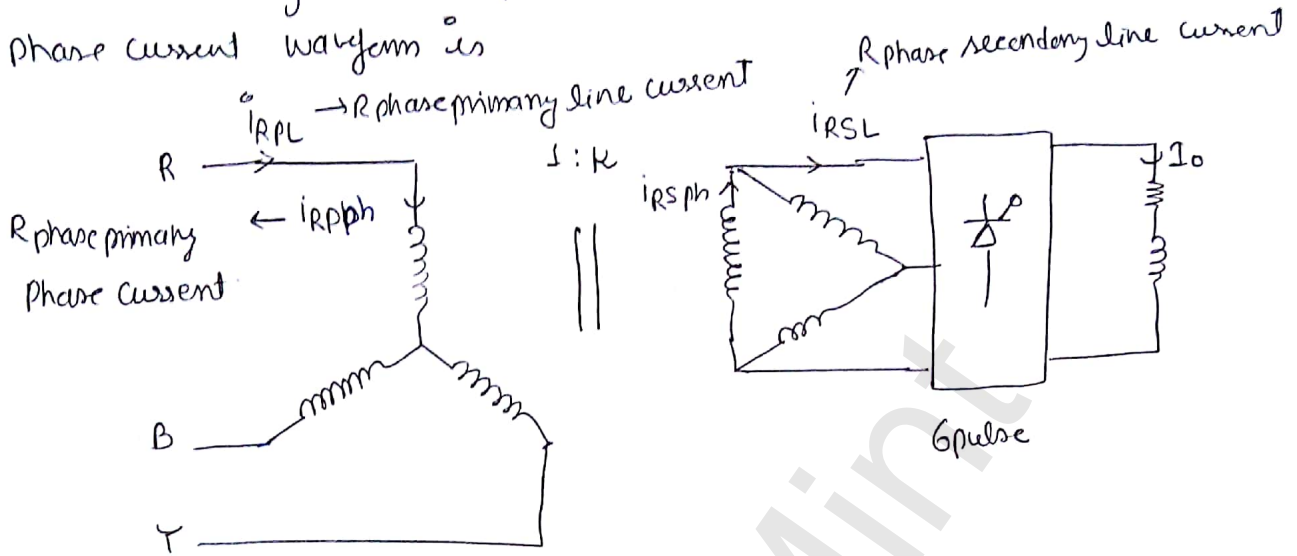 phase current waveform is
R phase secondary line current
iRPL → R phase primary line current
iRSL
R
1 : K
Io
iRS ph
R phase primary ← iRPph
Phase current
B
6pulse
Y
Mint